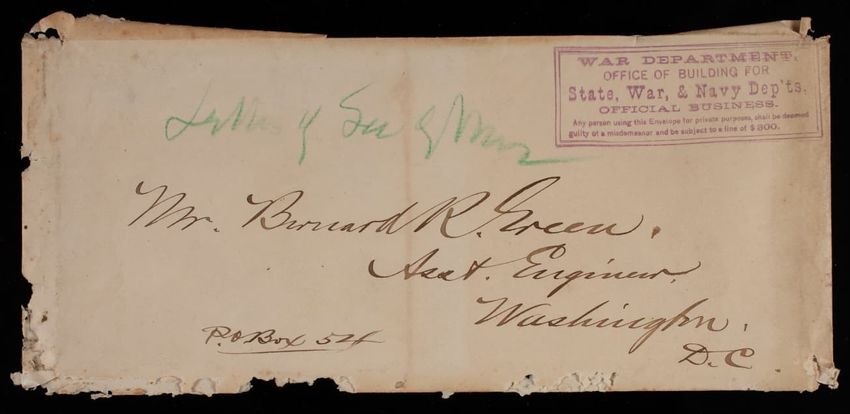 WAR DEPARTMENT.
OFFICE OF BUILDING FOR
State, War, & Navy Dep'ts.
OFFICIAL BUSINESS.
Any person using this Envelope for private purposes, shall be deemed
guilty of a misdemeanor and be subject to a fine of $300.
Letter of Sec of War
Mr. Bernard R. Green.
Asst. Engineer.
Washington.
D.C.
P.O Box 54